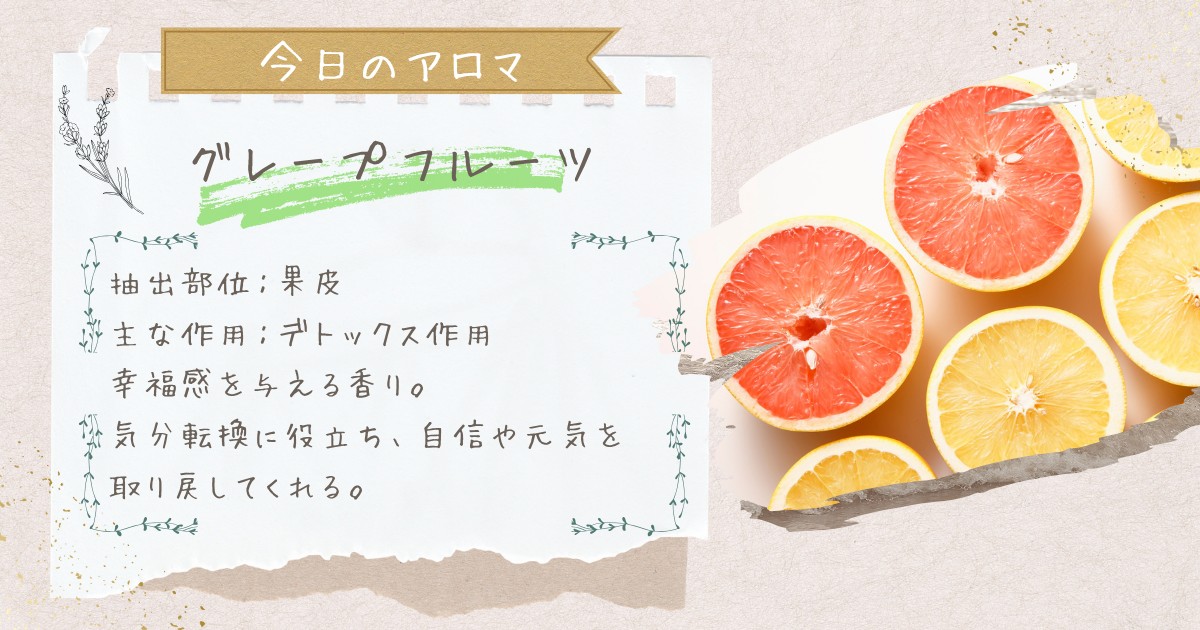 今日のアロマ
グレープフルーツ
抽出部位;果皮
主な作用;デトックス作用
幸福感を与える香り。
気分転換に役立ち、自信や元気を
取り戻してくれる。